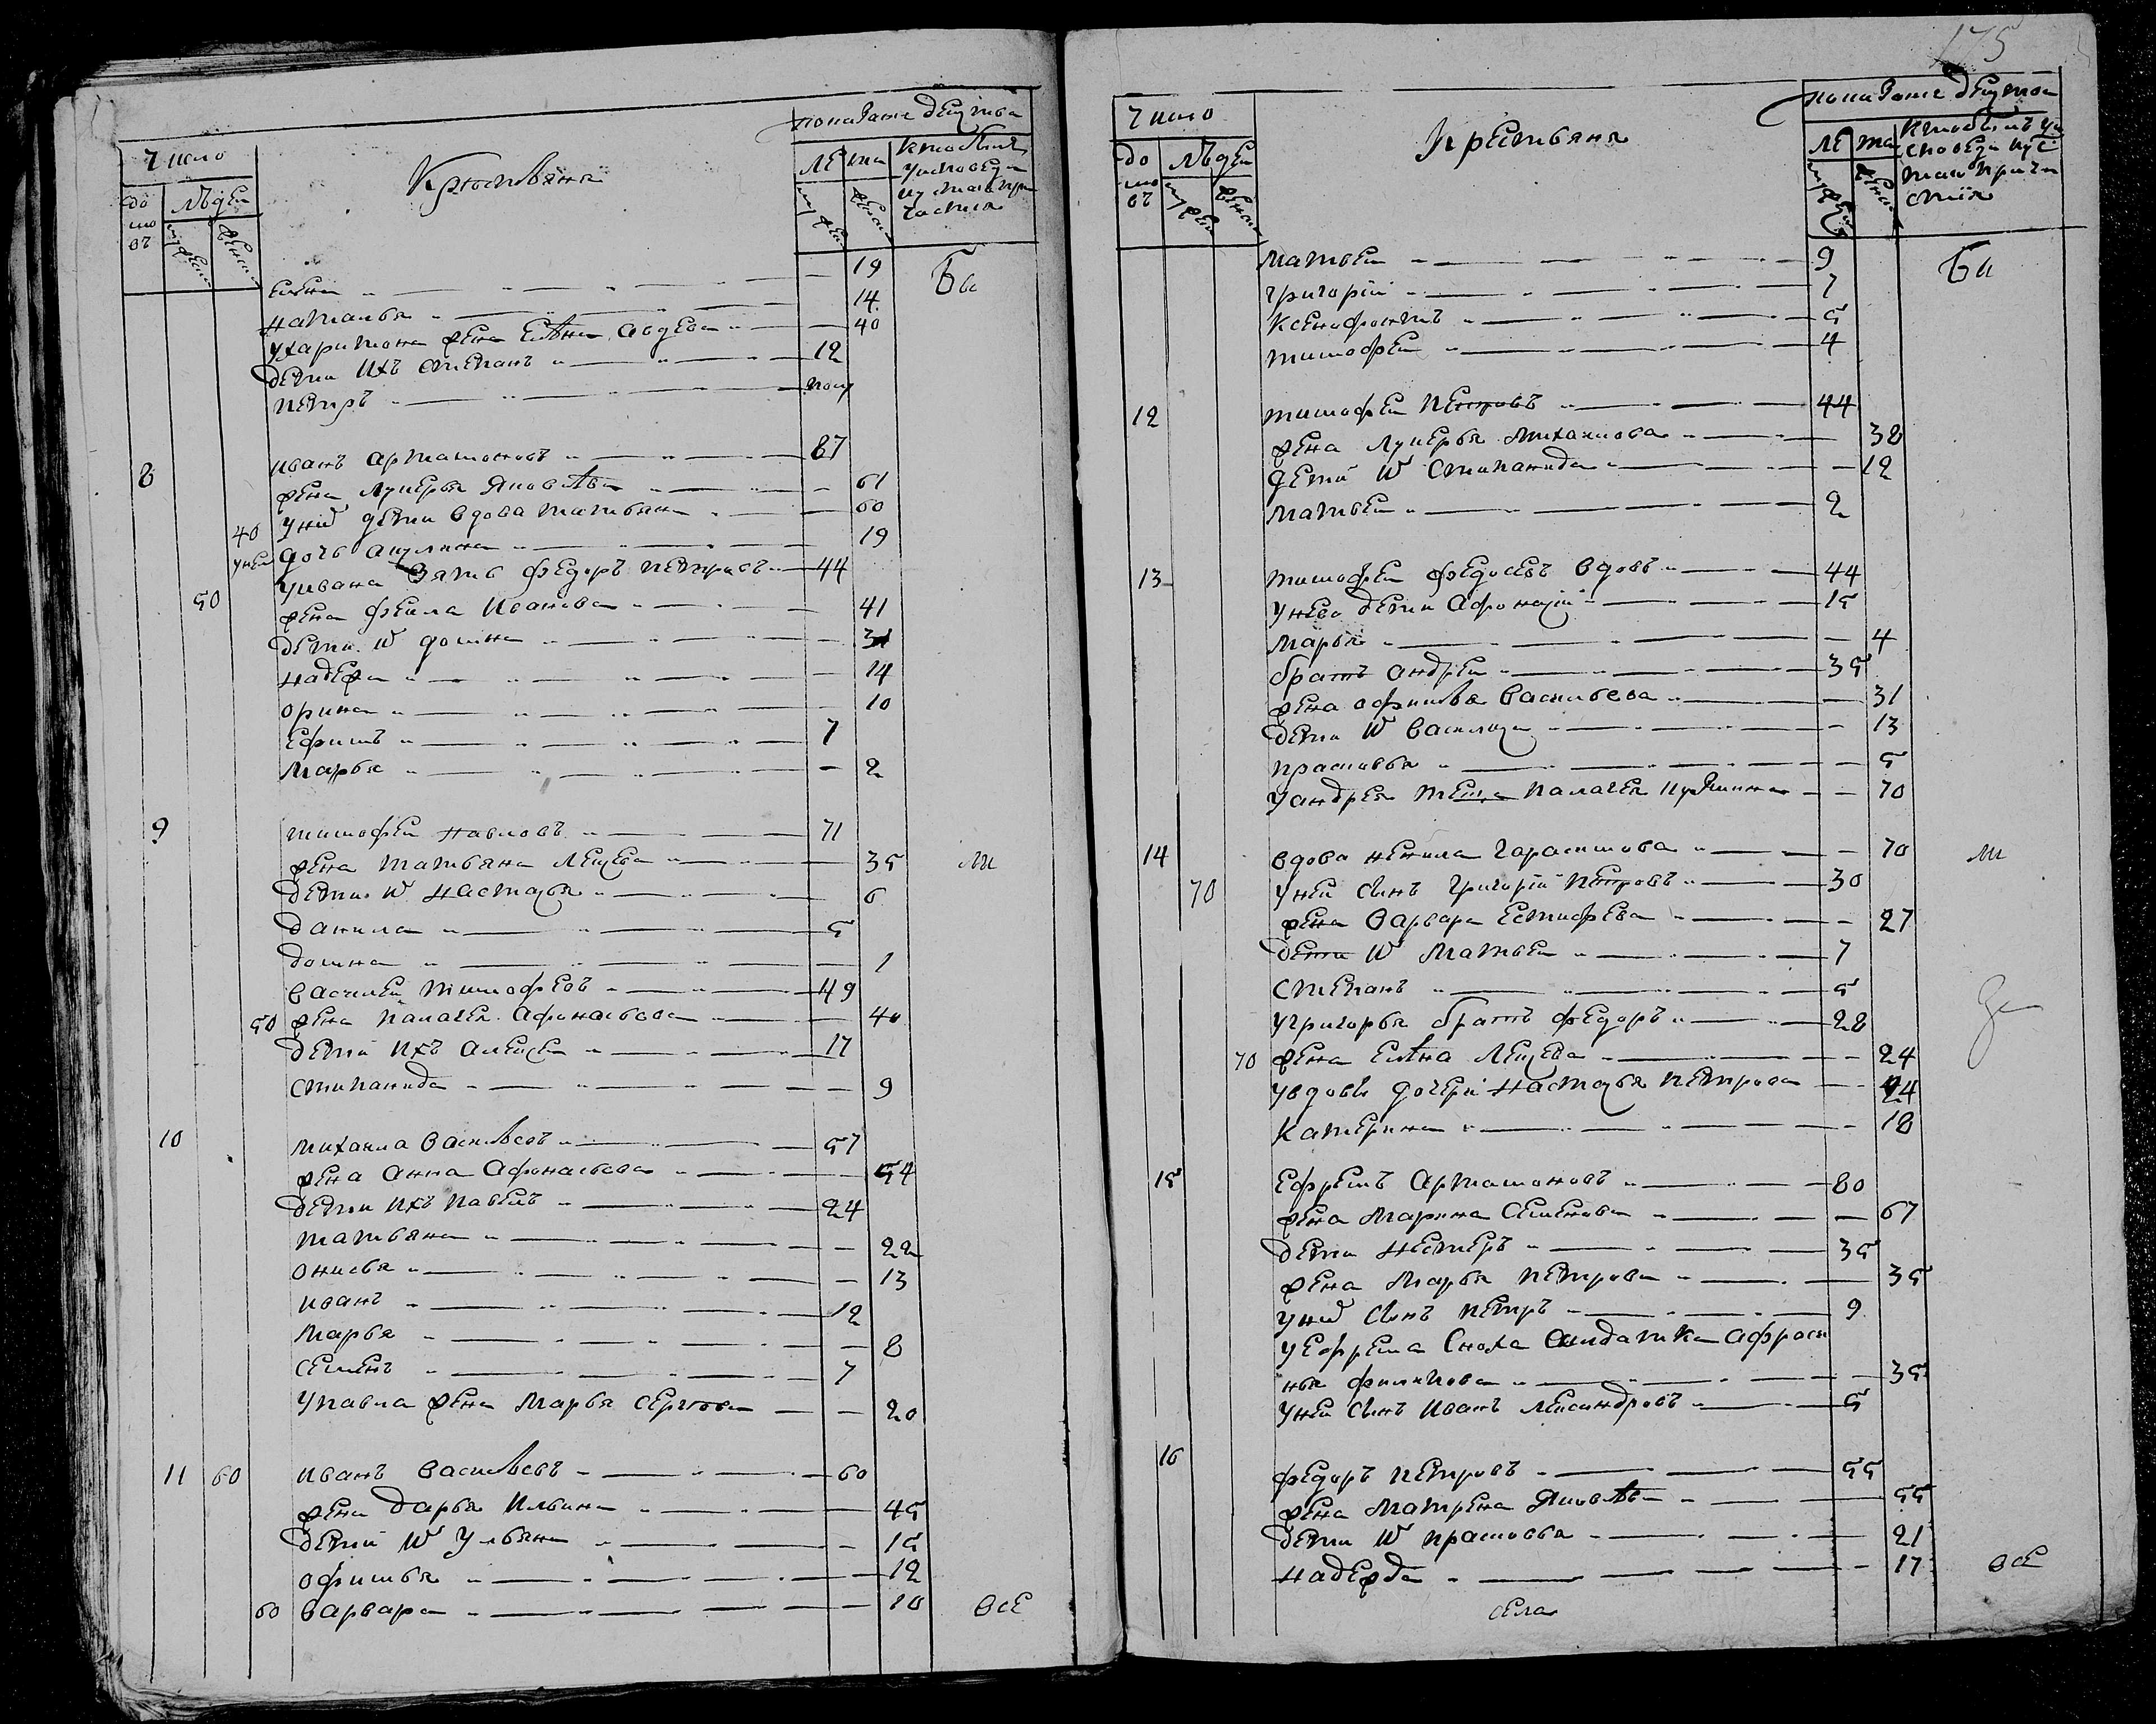 число
Крестьяня
показание действа
до
мо
въ
людей
мужеск
женск
ле та
мужеск
женск
кто были
у исповеди
и у таго при
частия
Елена — 19
Наталья — 14
У Харитона жена Елена Авдеева — 40
дети ихъ Степанъ 12
Петръ пол
Бы
8 Иванъ Артамоновъ 87
жена Лукерья Яковлева — 61
40 у нихъ дети вдова Татьяна — 60
у неи дочь Акулина 19
50 У Ивана зять Федоръ Петровъ 44
жена Фекла Иванова — 41
дети их Домна — 31
Надежа — 14
Орина — 10
Ефимъ 7
Марья — 2
9 Тимофеи Павловъ 71
жена Татьяна Лексева 35 ли
дети их Настасья 6
Данила 5
Домна — 1
Василеи Тимофеевъ 49
50 жена Палагея Афонасьева — 40
дети ихъ Алексеи 17
Стипанида 9
10 Михаила Васильевъ 57
жена Анна Афонасьева — 54
дети ихъ Павелъ 24
Татьяна — 22
Онисья — 13
Иванъ 12
Марья — 8
Семенъ 7
У Павла жена Марья Сергеева — 20
11 60 Иванъ Васильевъ 60
жена Дарья Ильина 45
дети их Ульяна — 15
Офимья — 12
60 Варвара — 10 все
175
число
Крестьяня
показание действа
до
мо
въ
людей
мужеск
женск
ле та
мужеск
женск
кто былъ у и
споведи и у с
таго причи
стия
Матвеи 9
Григорий 7
Ксенофонтъ 5
Тимофеи 4
Бы
12 Тимофеи Петровъ 44
жена Лукерья Михаилова — 38
дети их Стипанида — 12
Матвеи 2
13 Тимофеи Федосеевъ вдовъ 44
У него дети Афонасий 15
Марья — 4
братъ Андреи 35
жена Офимья Васильева — 31
дети их Василиса — 13
Прасковья — 5
У Андрея теща Палагея Кузмина — 70
14 вдова Ненила Гарасимова — 70 ли
70 У неи сынъ Григорий Петровъ 30
жена Варвара Естифеева — 27
дети их Матвеи 7
Степанъ 5
У Григорья братъ Федоръ 28
70 жена Елена Лексева — 24
У вдовы дочери Настасья Петрова — 24
Катерина — 18
15 Ефремъ Артамоновъ 80
жена Марина Семенова — 67
дети Нестеръ 35
жена Марья Петрова — 35
у них сынъ Петръ 9
У Ефрема сноха салдатка Афрасе
нья Филипова — 35
У неи сынъ Иванъ Лександровъ 5
16 Федоръ Петровъ 55
жена Матрена Яковлева 55
дети их Прасковья — 21
Надежда — 17 все
села